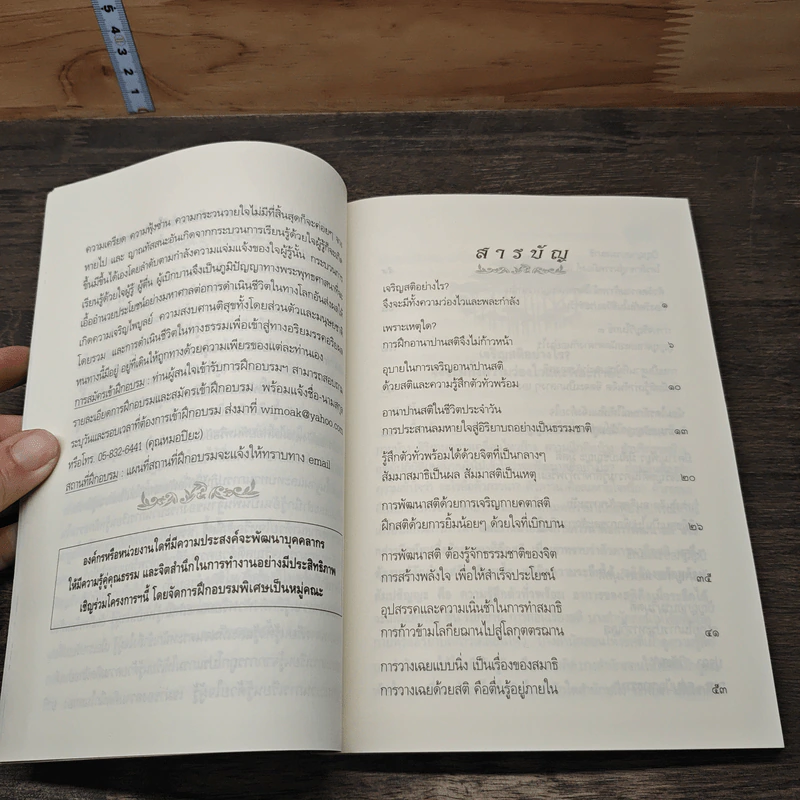 5 4 3 2 1
ความเครียด ความฟุ้งซ่าน ความกระวนวายใจไม่มีที่สิ้นสุดก็จะค่อยๆ
หายไป และ ญาณทัสสนะอันเกิดจากกระบวนการเรียนรู้ด้วยใจผู้รู้ก็จะเกิด
ขึ้นมีขึ้นได้เองโดยลำดับตามกำลังความแจ่มแจ้งของใจผู้รู้นั้น กระบวนการ
เรียนรู้ด้วยใจผู้รู้ ผู้ตื่น ผู้เบิกบานจึงเป็นภูมิปัญญาทางพระพุทธศาสนาที่จะ
เอื้ออำนวยประโยชน์อย่างมหาศาลต่อการดำเนินชีวิตในทางโลกอันส่งผลให้
เกิดความเจริญไพบูลย์ ความสงบศานติสุขทั้งโดยส่วนตัวและมนุษยชาติ
โดยรวม และการดำเนินชีวิตในทางธรรมเพื่อเข้าสู่ทางอริยมรรคอริยผล
หนทางนี้มีอยู่ อยู่ที่เดินให้ถูกทางด้วยความเพียรของแต่ละท่านเอง
การสมัครเข้าฝึกอบรม : ท่านผู้สนใจเข้ารับการฝึกอบรมฯ สามารถสอบถาม
รายละเอียดการฝึกอบรมและสมัครเข้าฝึกอบรม พร้อมแจ้งชื่อ-นามสกุล
ระบุวันและรอบเวลาที่ต้องการเข้าฝึกอบรม ส่งมาที่ wimoak@yahoo.com
หรือโทร. 05-832-6441 (คุณหมอปิยะ)
สถานที่ฝึกอบรม : แผนที่สถานที่ฝึกอบรมจะแจ้งให้ทราบทาง email
องค์กรหรือหน่วยงานใดที่มีความประสงค์จะพัฒนาบุคคลากร
ให้มีความรู้คู่คุณธรรม และจิตสำนึกในการทำงานอย่างมีประสิทธิภาพ
เชิญร่วมโครงการฯนี้ โดยจัดการฝึกอบรมพิเศษเป็นหมู่คณะ
สารบัญ
เจริญสติอย่างไร?
จึงจะมีทั้งความว่องไวและพละกำลัง ๑
เพราะเหตุใด?
การฝึกอานาปานสติจึงไม่ก้าวหน้า ๖
อุบายในการเจริญอานาปานสติ
ด้วยสติและความรู้สึกตัวทั่วพร้อม ๑๐
อานาปานสติในชีวิตประจำวัน
การประสานลมหายใจสู่อิริยาบถอย่างเป็นธรรมชาติ ๑๓
รู้สึกตัวทั่วพร้อมได้ด้วยจิตที่เป็นกลางๆ
สัมมาสมาธิเป็นผล สัมมาสติเป็นเหตุ ๒๐
การพัฒนาสติด้วยการเจริญกายคตาสติ
ฝึกสติด้วยการยิ้มน้อยๆ ด้วยใจที่เบิกบาน ๒๖
การพัฒนาสติ ต้องรู้จักธรรมชาติของจิต
การสร้างพลังใจ เพื่อให้สำเร็จประโยชน์ ๓๕
อุปสรรคและความเนิ่นช้าในการทำสมาธิ
การก้าวข้ามโลกียฌานไปสู่โลกุตตรฌาน ๔๑
การวางเฉยแบบนิ่ง เป็นเรื่องของสมาธิ
การวางเฉยด้วยสติ คือตื่นรู้อยู่ภายใน ๕๓